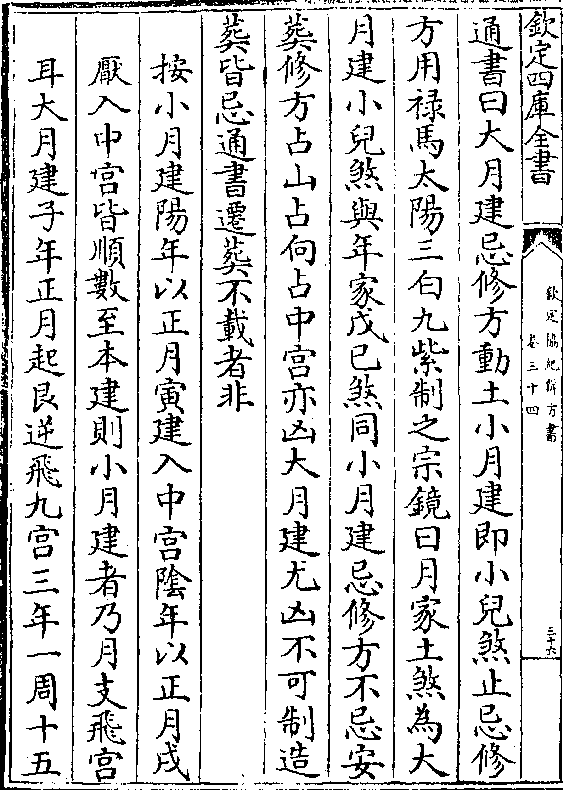 欽定四庫全書
欽定協紀辨方書
卷三十四
三十六
通書曰大月建忌修方動土小月建即小兒煞止忌修
方用禄馬太陽三白九紫制之宗鏡曰月家土煞為大
月建小兒煞與年家戊已煞同小月建忌修方不忌安
葬修方占山占向占中宮亦凶大月建尤凶不可制造
葬皆忌通書遷葬不載者非
按小月建陽年以正月寅建入中宮陰年以正月戌
厭入中宮皆順數至本建則小月建者乃月支飛宮
耳大月建子年正月起艮逆飛九宮三年一周十五